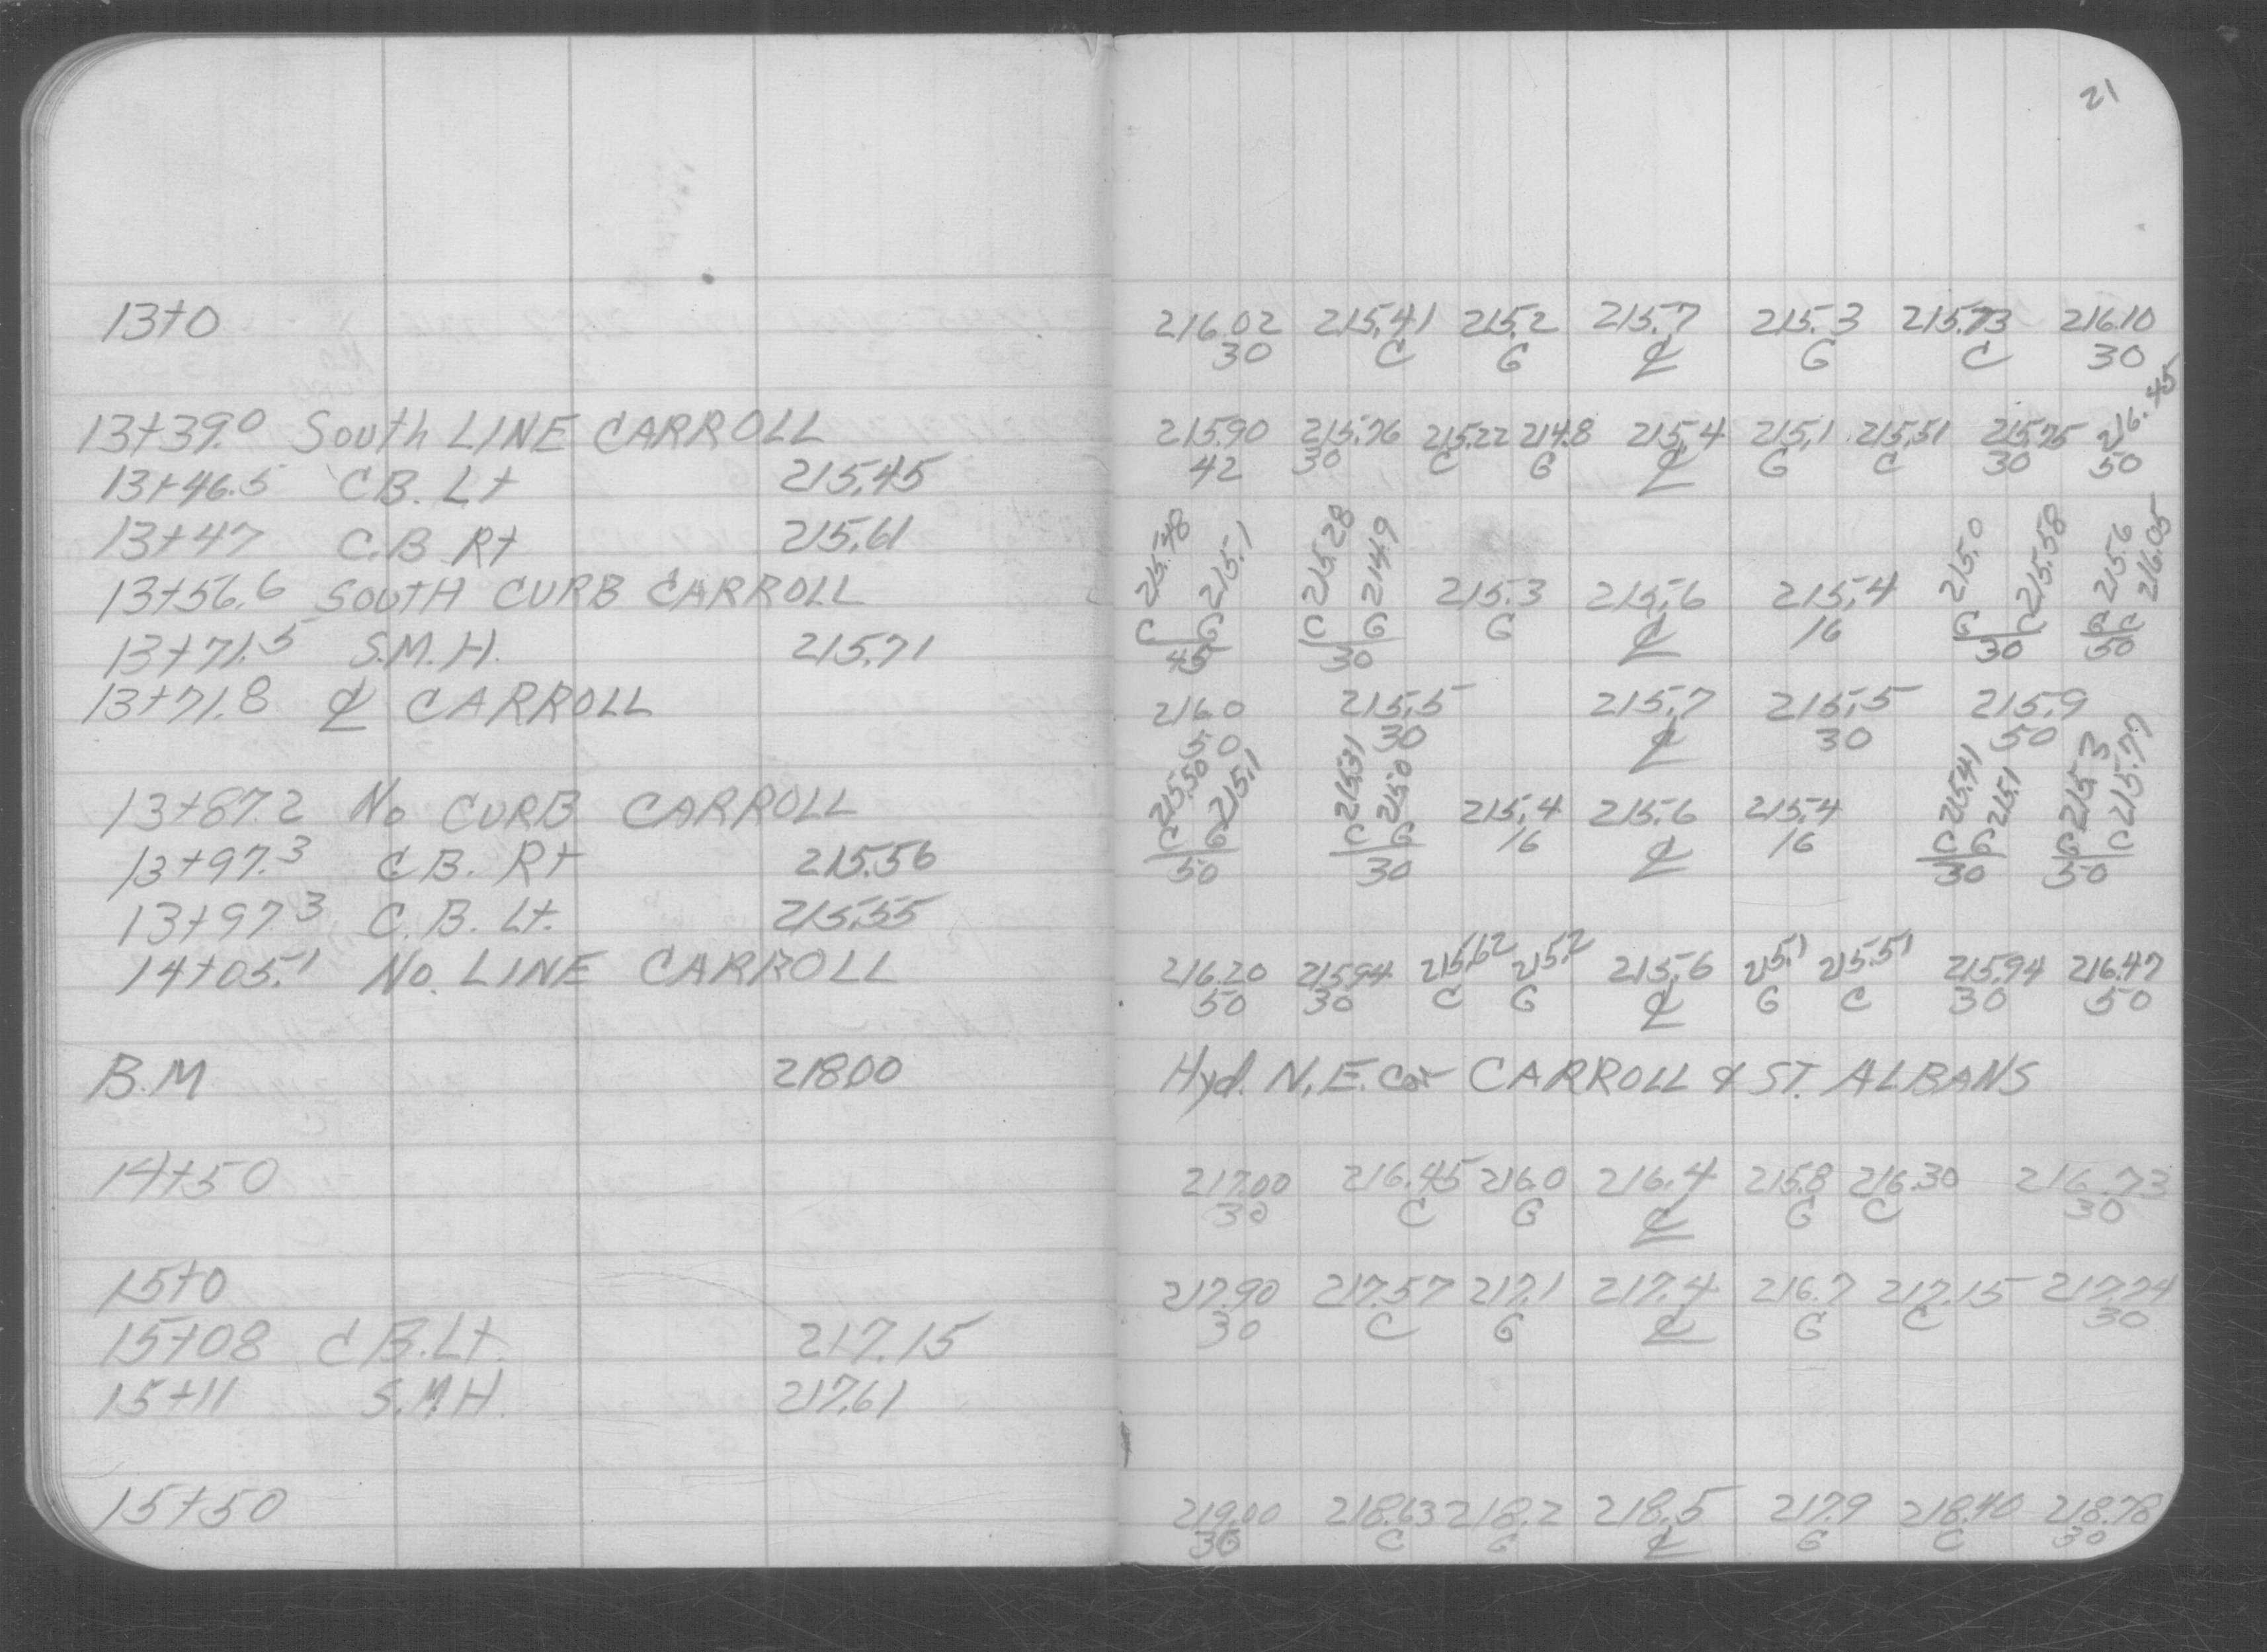 21
13+0 216.02 215.41 215.2 215.7 215.3 215.73 216.10
30 C G ℄ G C 30
13+39.0 South LINE CARROLL 215.90 215.76 215.22 214.8 215.4 215.1 215.51 215.75 216.45
42 30 C G ℄ G C 30 50
13+46.5 C.B. Lt 215.45
13+47 C.B Rt 215.61
13+56.6 SOUTH CURB CARROLL 215.48 215.1 215.28 214.9 215.3 215.6 215.4 215.0 215.58 215.6 216.05
C G C G G ℄ 16 G C G C
45 30 30 50
13+71.5 S.M.H. 215.71
13+71.8 ℄ CARROLL 216.0 215.5 215.7 215.5 215.9
50 30 ℄ 30 50
13+87.2 No CURB CARROLL 215.50 215.1 215.31 215.0 215.4 215.6 215.4 215.41 215.1 215.3 215.77
C G C G 16 ℄ 16 C G G C
50 30 30 50
13+97.3 C.B. Rt 215.56
13+97.3 C.B. Lt. 215.55
14+05.1 No. LINE CARROLL 216.20 215.94 215.62 215.2 215.6 215.1 215.51 215.94 216.47
50 30 C G ℄ G C 30 50
B.M 218.00 Hyd. N.E. Cor CARROLL & ST. ALBANS
14+50 217.00 216.45 216.0 216.4 215.8 216.30 216.73
30 C G ℄ G C 30
15+0 217.90 217.57 217.1 217.4 216.7 217.15 217.74
30 C G ℄ G C 30
15+08 C B. Lt. 217.15
15+11 S.M.H. 217.61
15+50 219.00 218.63 218.2 218.5 217.9 218.40 218.78
30 C G ℄ G C 30